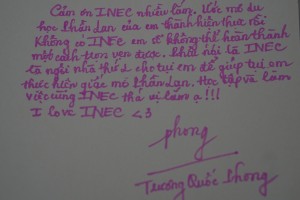 Cảm ơn INEC nhiều lắm. Ước mơ du
học Phần Lan của em thành hiện thực rồi
Không có INEC em sẽ không thể hoàn thành
một cách trọn vẹn được. Phải nói là INEC
là ngôi nhà thứ 2 cho tụi em để giúp tụi em
thực hiện giấc mơ Phần Lan. Học tập và làm
việc cùng INEC thả ai làm ạ!!!
I love INEC <3
phong
Trương Quốc Phong